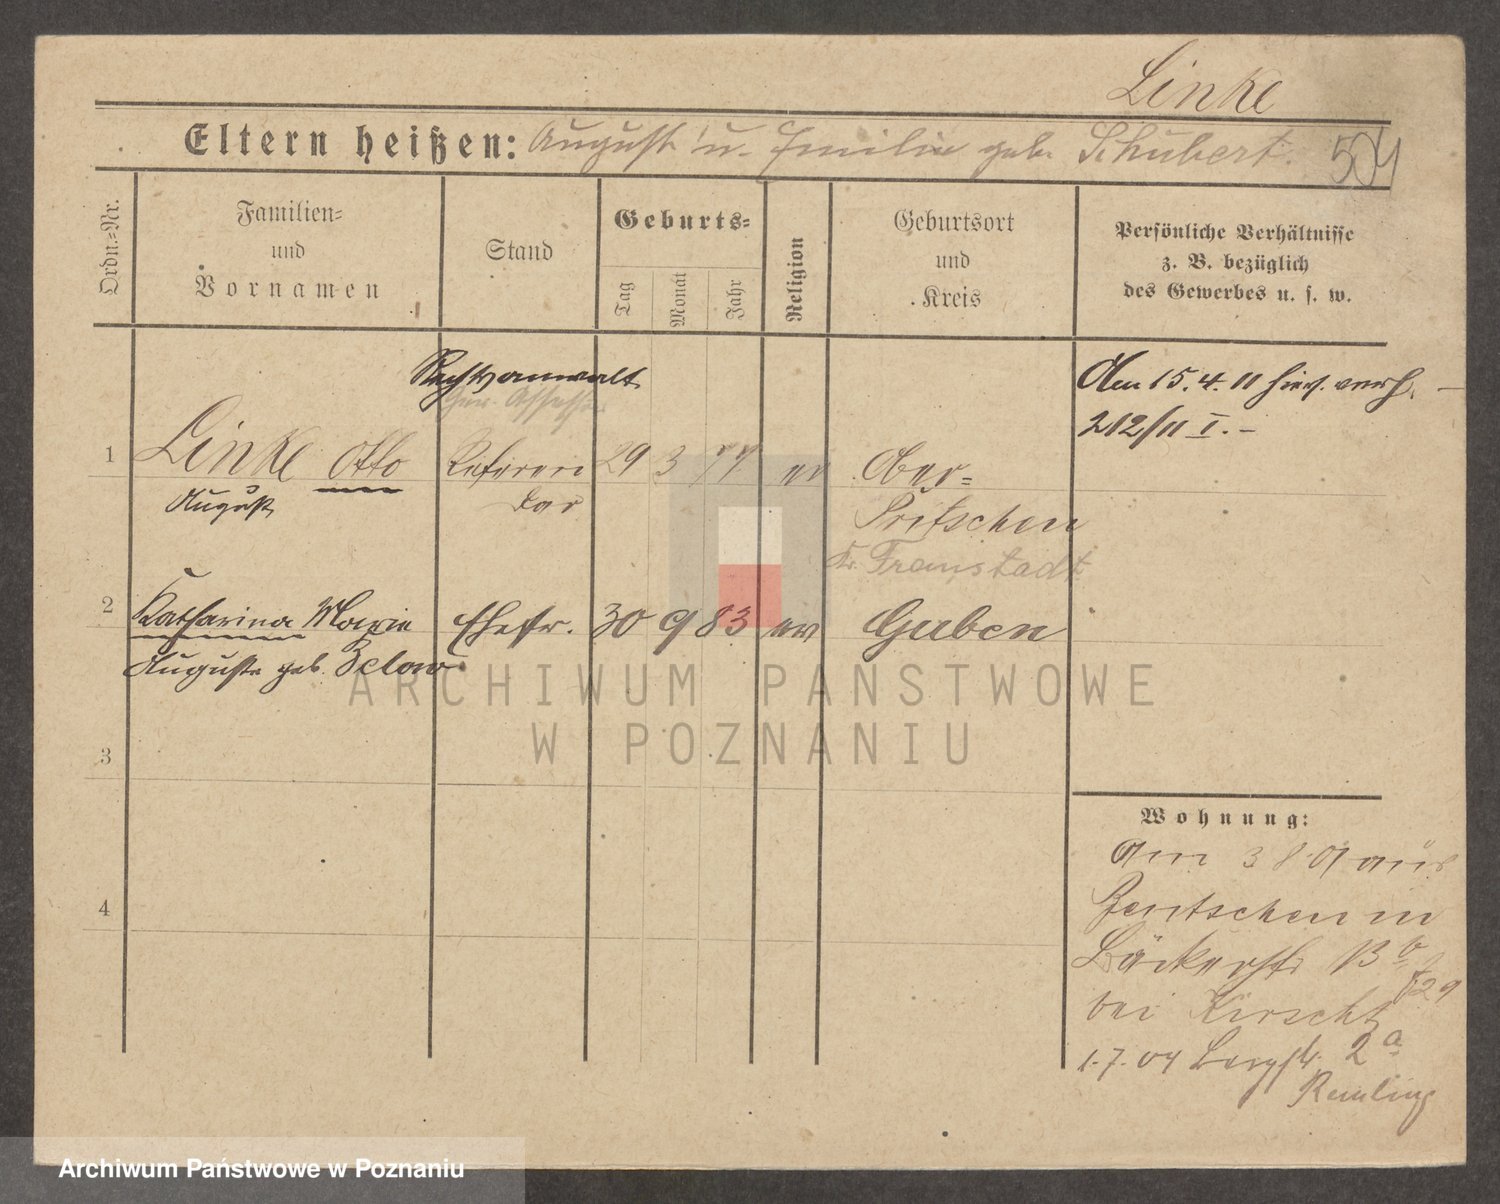 Linke
Eltern heißen: August u. Emilie geb. Schubert.
504
Ordn.-Nr.
Familien-
und
Vornamen
Stand
Geburts-
Tag
Monat
Jahr
Religion
Geburtsort
und
Kreis
Persönliche Verhältnisse
z. B. bezüglich
des Gewerbes u. s. w.
Rechtsanwalt
Ger. Assessor
Am 15.4.11 hier verh. –
212/11 I. –
1 Linke Otto Referen 29 3 77 ev Ober-
August dar Pritschen
Kr. Fraustadt
2 Katharina Marie Ehefr. 30 9 83 ev Guben
Auguste geb. Below
ARCHIWUM PAŃSTWOWE
W POZNANIU
3
4
Wohnung:
Am 3 8 01 aus
Bentschen in
Bäckerstr 13 b
bei Kirscht
1.7.04 Bergstr. 2 a
Remling
Archiwum Państwowe w Poznaniu